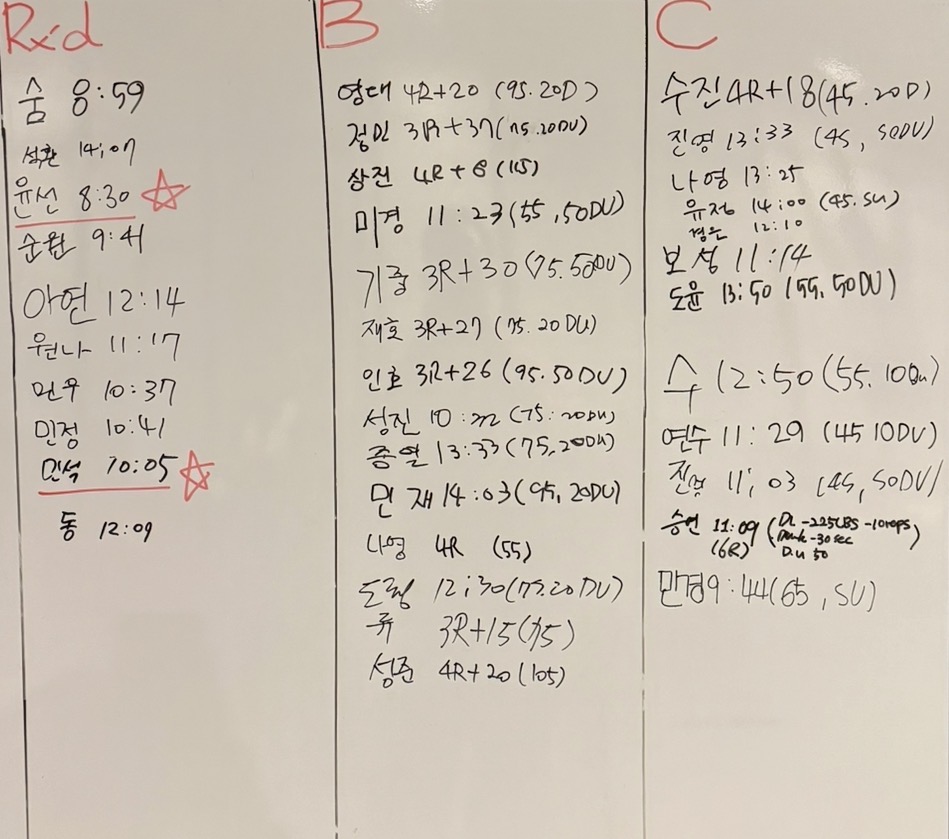 Rx'd
숨 8:59
석환 14:07
윤선 8:30
순원 9:41
아연 12:14
원나 11:17
민우 10:37
민정 10:41
민석 10:05
동 12:09
B
영대 4R+20 (95.20D)
정민 3R+37(75.20DU)
상진 4R+8 (115)
미경 11:23(55,50DU)
기출 3R+30(75.50DU)
재호 3R+27 (75.20DU)
인호 3R+26 (95.50DU)
성진 10:22 (75.20DU)
종열 13:33(75,20DU)
민재 14:03(95,20DU)
나영 4R (55)
도형 12:30(75.20DU)
류 3R+15(75)
성준 4R+20(105)
C
수진 4R+18(45.20D)
진영 13:33 (45, 50DU)
나영 13:25
유정 14:00 (45.SU)
경은 12:10
보성 11:14
도윤 13:50 (55,50DU)
수 12:50(55.10Du)
연수 11:29 (45 10DU)
진영 11:03 (45,50DU)
승연 11:09 (DL -225LBS -10reps
(6R) Plank -30sec
D.u 50)
민경 9:44(65,SU)